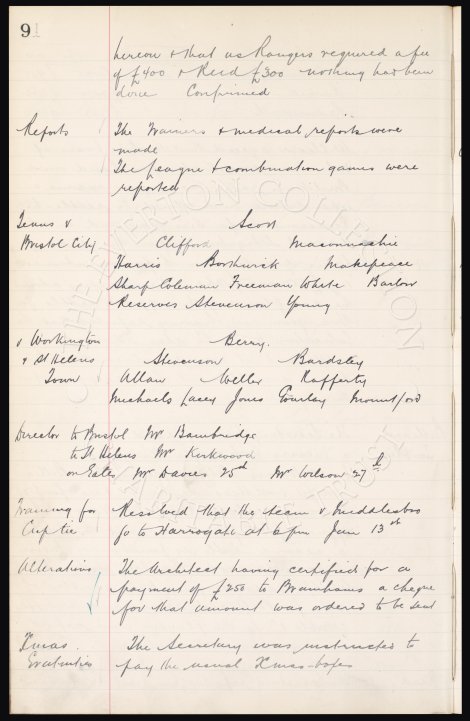 91
hereon & that as Rangers required a fee
of £400 & Reid £300 nothing had been
done Confirmed
Reports
The Trainers & medical reports were
made
The League & combination games were
reported
Teams v
Bristol City
Scott
Clifford Maconnachie
Harris Borthwick Makepeace
Sharp Coleman Freeman White Barlow
Reserves Stevenson Young
v Workington
& St Helens
Town
Berry.
Stevenson Bardsley
Allan Weller Rafferty
Michaels Lacey Jones Gourley Mountford
Director to Bristol Mr Bainbridge
to St Helens Mr Kirkwood
on Gates Mr Davies 25th Mr Wilson 27th
Training for
Cup tie
Resolved that the team v Middlesbro
go to Harrogate at 6pm Jan 13th
Alterations
The Architect having certified for a
payment of £250 to Bramhams a cheque
for that amount was ordered to be sent
Xmas
Gratuities
The Secretary was instructed to
pay the usual Xmas-boxes
THE EVERTON COLLECTION
CHARITABLE TRUST